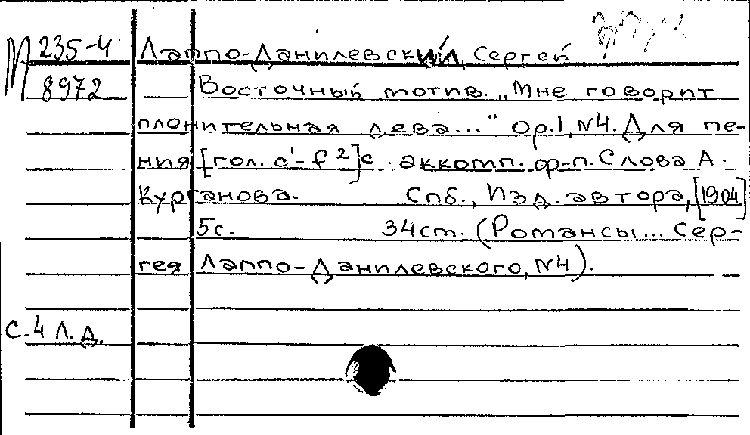 М 235-4 Лаппо-Данилевский, Сергей
8972 Восточный мотив. „Мне говорит
пленительная дева..." ор.1, №4. Для пе-
ния [гол. c¹-f²] с аккомп. ф-п. Слова А.
Курганова. Спб., Изд. автора, [1904]
5с. 34см. (Романсы... Сер-
гея Лаппо-Данилевского, №4).
С-4 Л.Д.